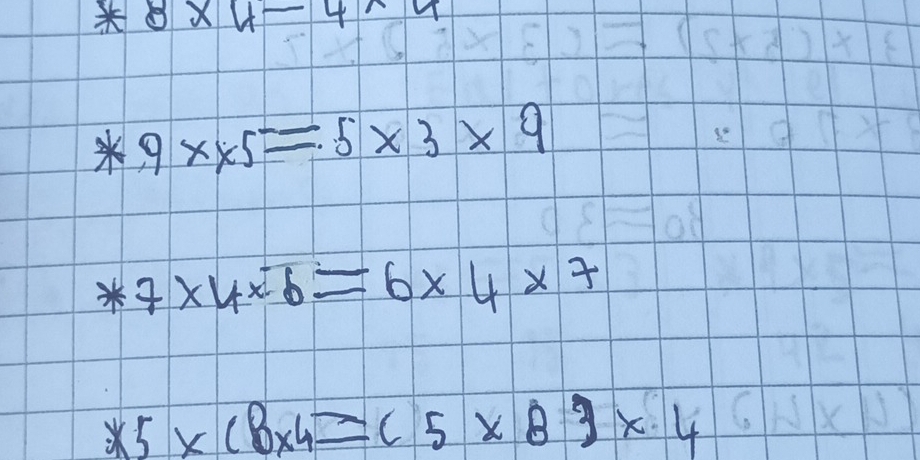 * 8 × 4 = 4 × 4
* 9 × × 5 = 5 × 3 × 9
* 7 × 4 × 6 = 6 × 4 × 7
* 5 × (8 × 4 = ( 5 × 8 ) × 4